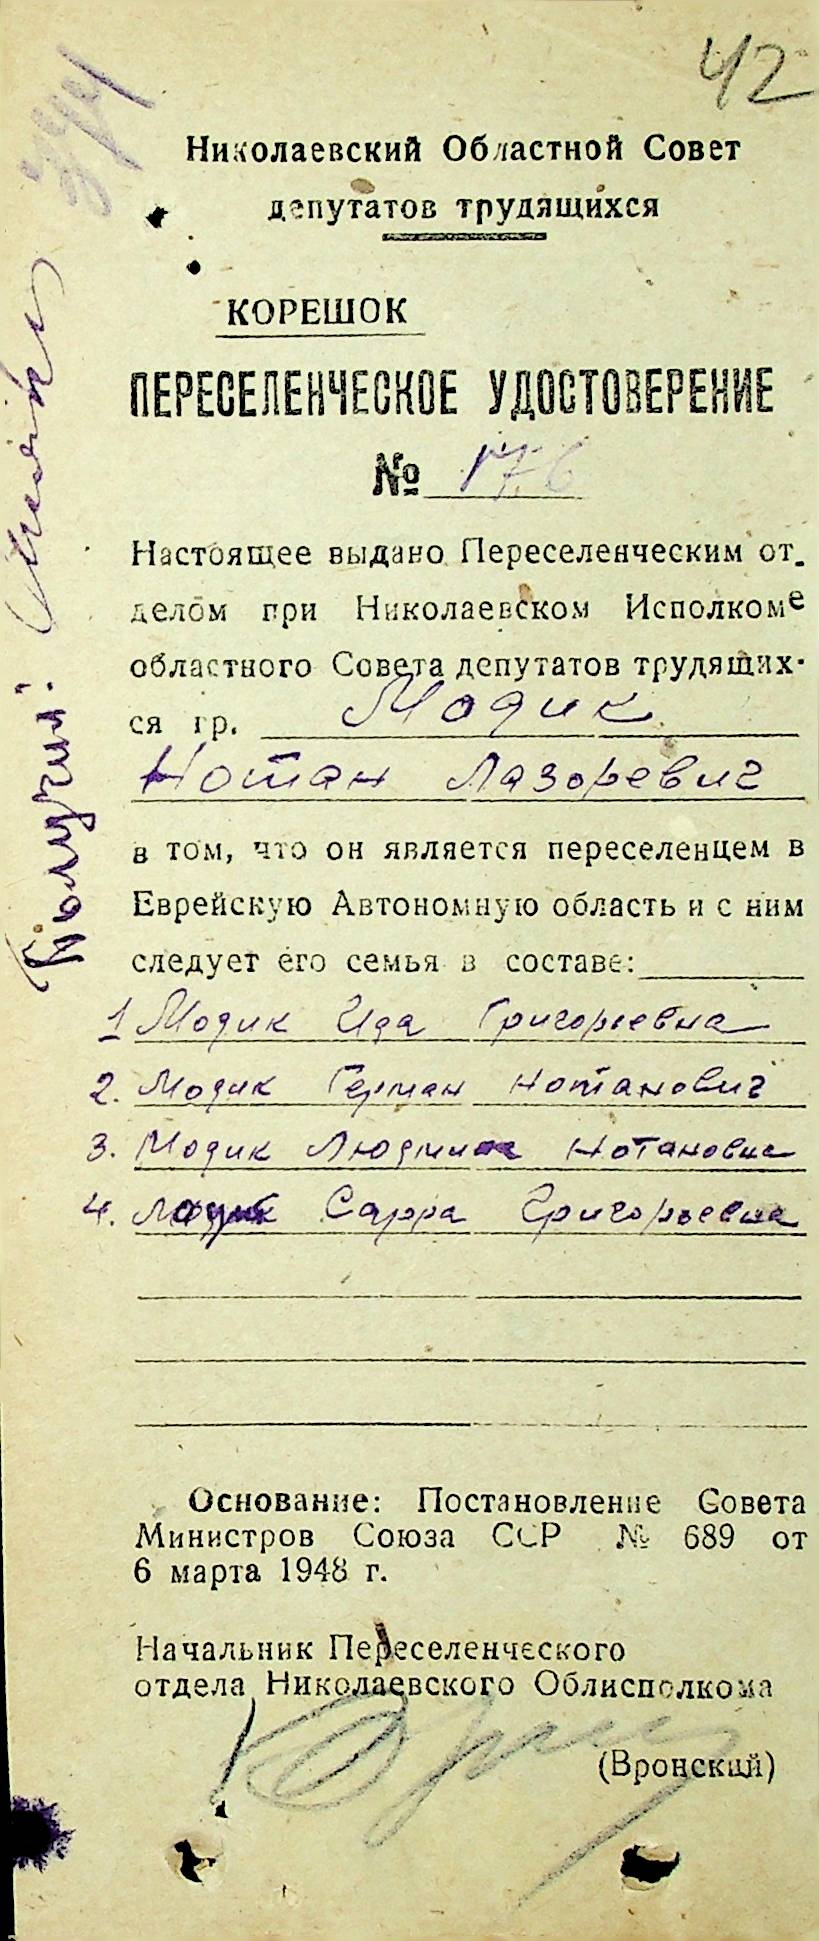 42
Николаевский Областной Совет
депутатов трудящихся
КОРЕШОК
ПЕРЕСЕЛЕНЧЕСКОЕ УДОСТОВЕРЕНИЕ
№ 176
Настоящее выдано Переселенческим от-
делом при Николаевском Исполкоме
областного Совета депутатов трудящих-
ся гр. Модик
Нотан Лазоревич
в том, что он является переселенцем в
Еврейскую Автономную область и с ним
следует его семья в составе:
1 Модик Ида Григорьевна
2. Модик Герман Нотанович
3. Модик Людмила Нотановна
4. Модик Сарра Григорьевна
Основание: Постановление Совета
Министров Союза ССР № 689 от
6 марта 1948 г.
Начальник Переселенческого
отдела Николаевского Облисполкома
(Вронский)
Получил: